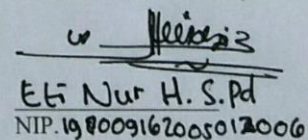 Eti Nur H. S.Pd
NIP. 198009162005012006